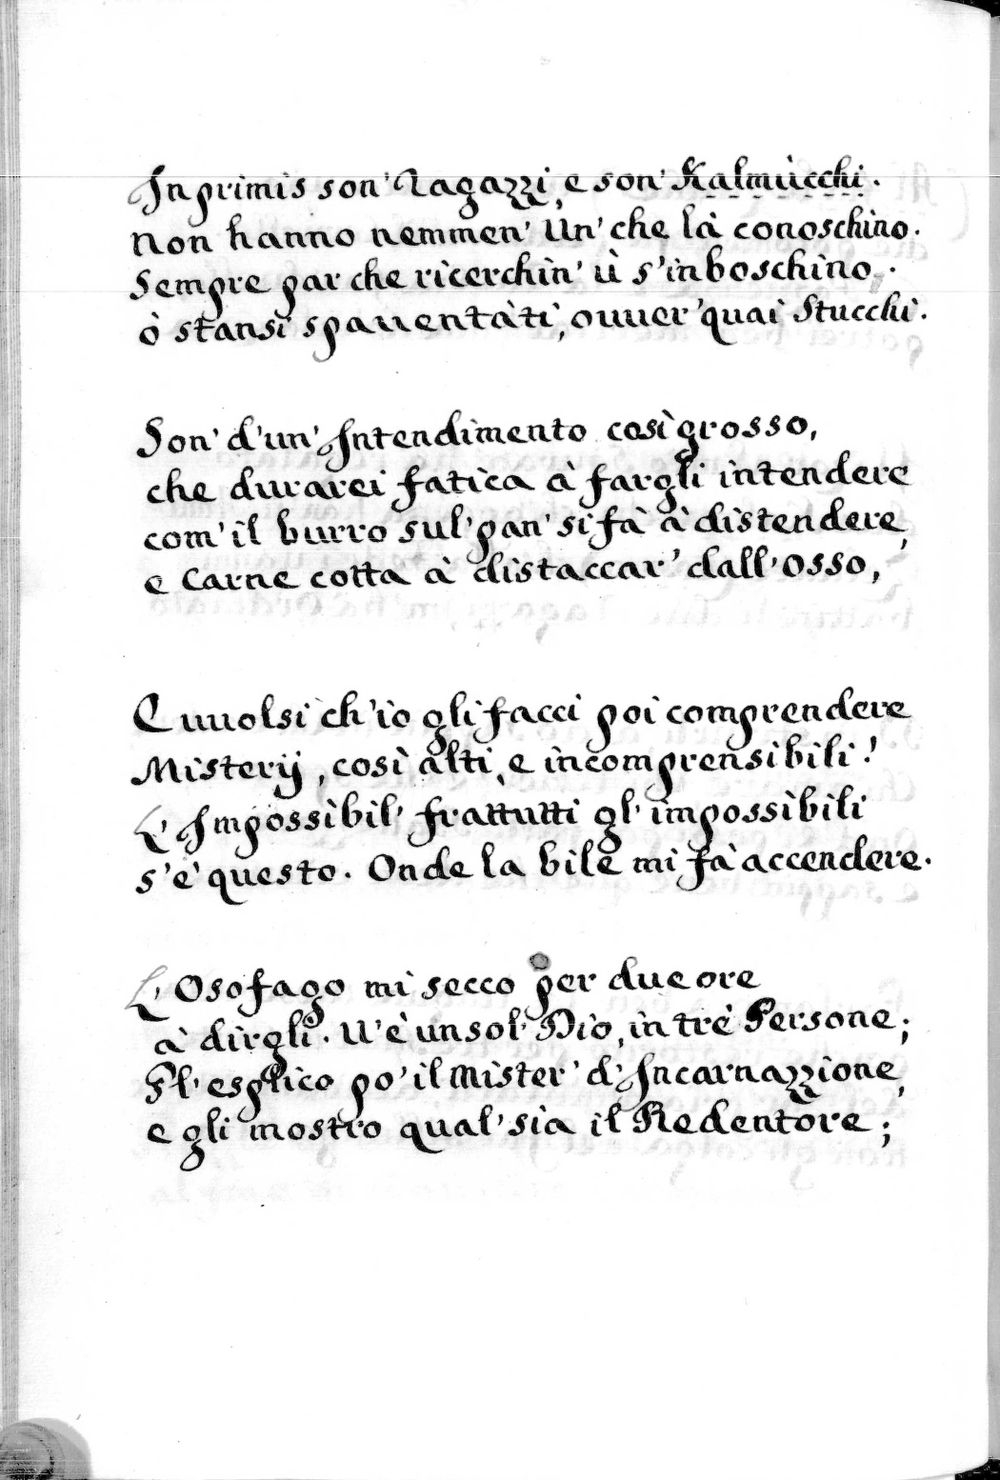 Inprimis son' Ragazzi, e son' Kalmùcchi.
Non hanno nemmen' Un' che là conoschino.
Sempre par che ricerchin' ù s'inboschino,.
ò stansi spauentàti, ouuer' quai Stucchi.
Son' d'un' Intendimento così grosso,
che durarei fatica à fargli intendere
com' il burro sul' pan' si fà à distendere,
e Carne cotta à distaccar' dall'osso,
E uuolsi ch'io gli facci poi comprendere
Misterij, così alti, e incomprensibili!
L'Impossibil' frattutti gl'impossibili
s'è questo. Onde la bile mi fà accendere.
L'Osofago mi secco per due ore
à dirgli. U'è un sol' Dio, in trè Persone;
Gl'esplico po' il Mister' d'Incarnazzione,
e gli mostro qual' sia il Redentore;